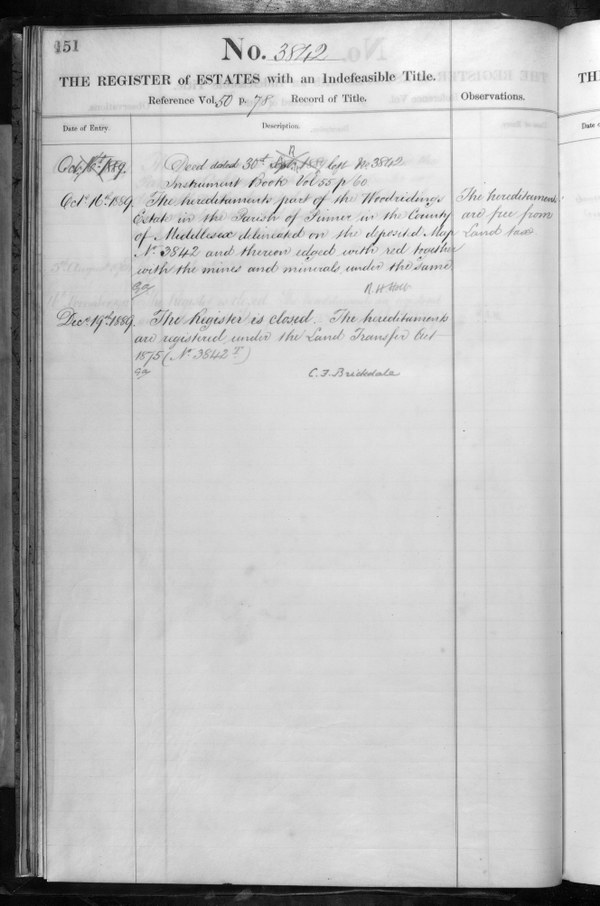 151
No. 3842
THE REGISTER of ESTATES with an Indefeasible Title.
Reference Vol. 50 p. 78. Record of Title.
Observations.
Date of Entry.
Description.
Oct. 1889.
Deed dated 30th 1889 Copt No 3842
Instrument Book Vol 55 p 60
Octr. 16th. 1889. The hereditaments part of the Woodridings
Estate in the Parish of Pinner in the County
of Middlesex delineated on the deposited Map
No. 3842 and thereon edged with red together
with the mines and minerals under the same
The hereditaments
are free from
Land tax
R H Holt
Decr. 19th. 1889. The Register is closed. The hereditaments
are registered under the Land Transfer Act
1875 (No. 3842 T)
C. F. Brickdale
TH
Date of